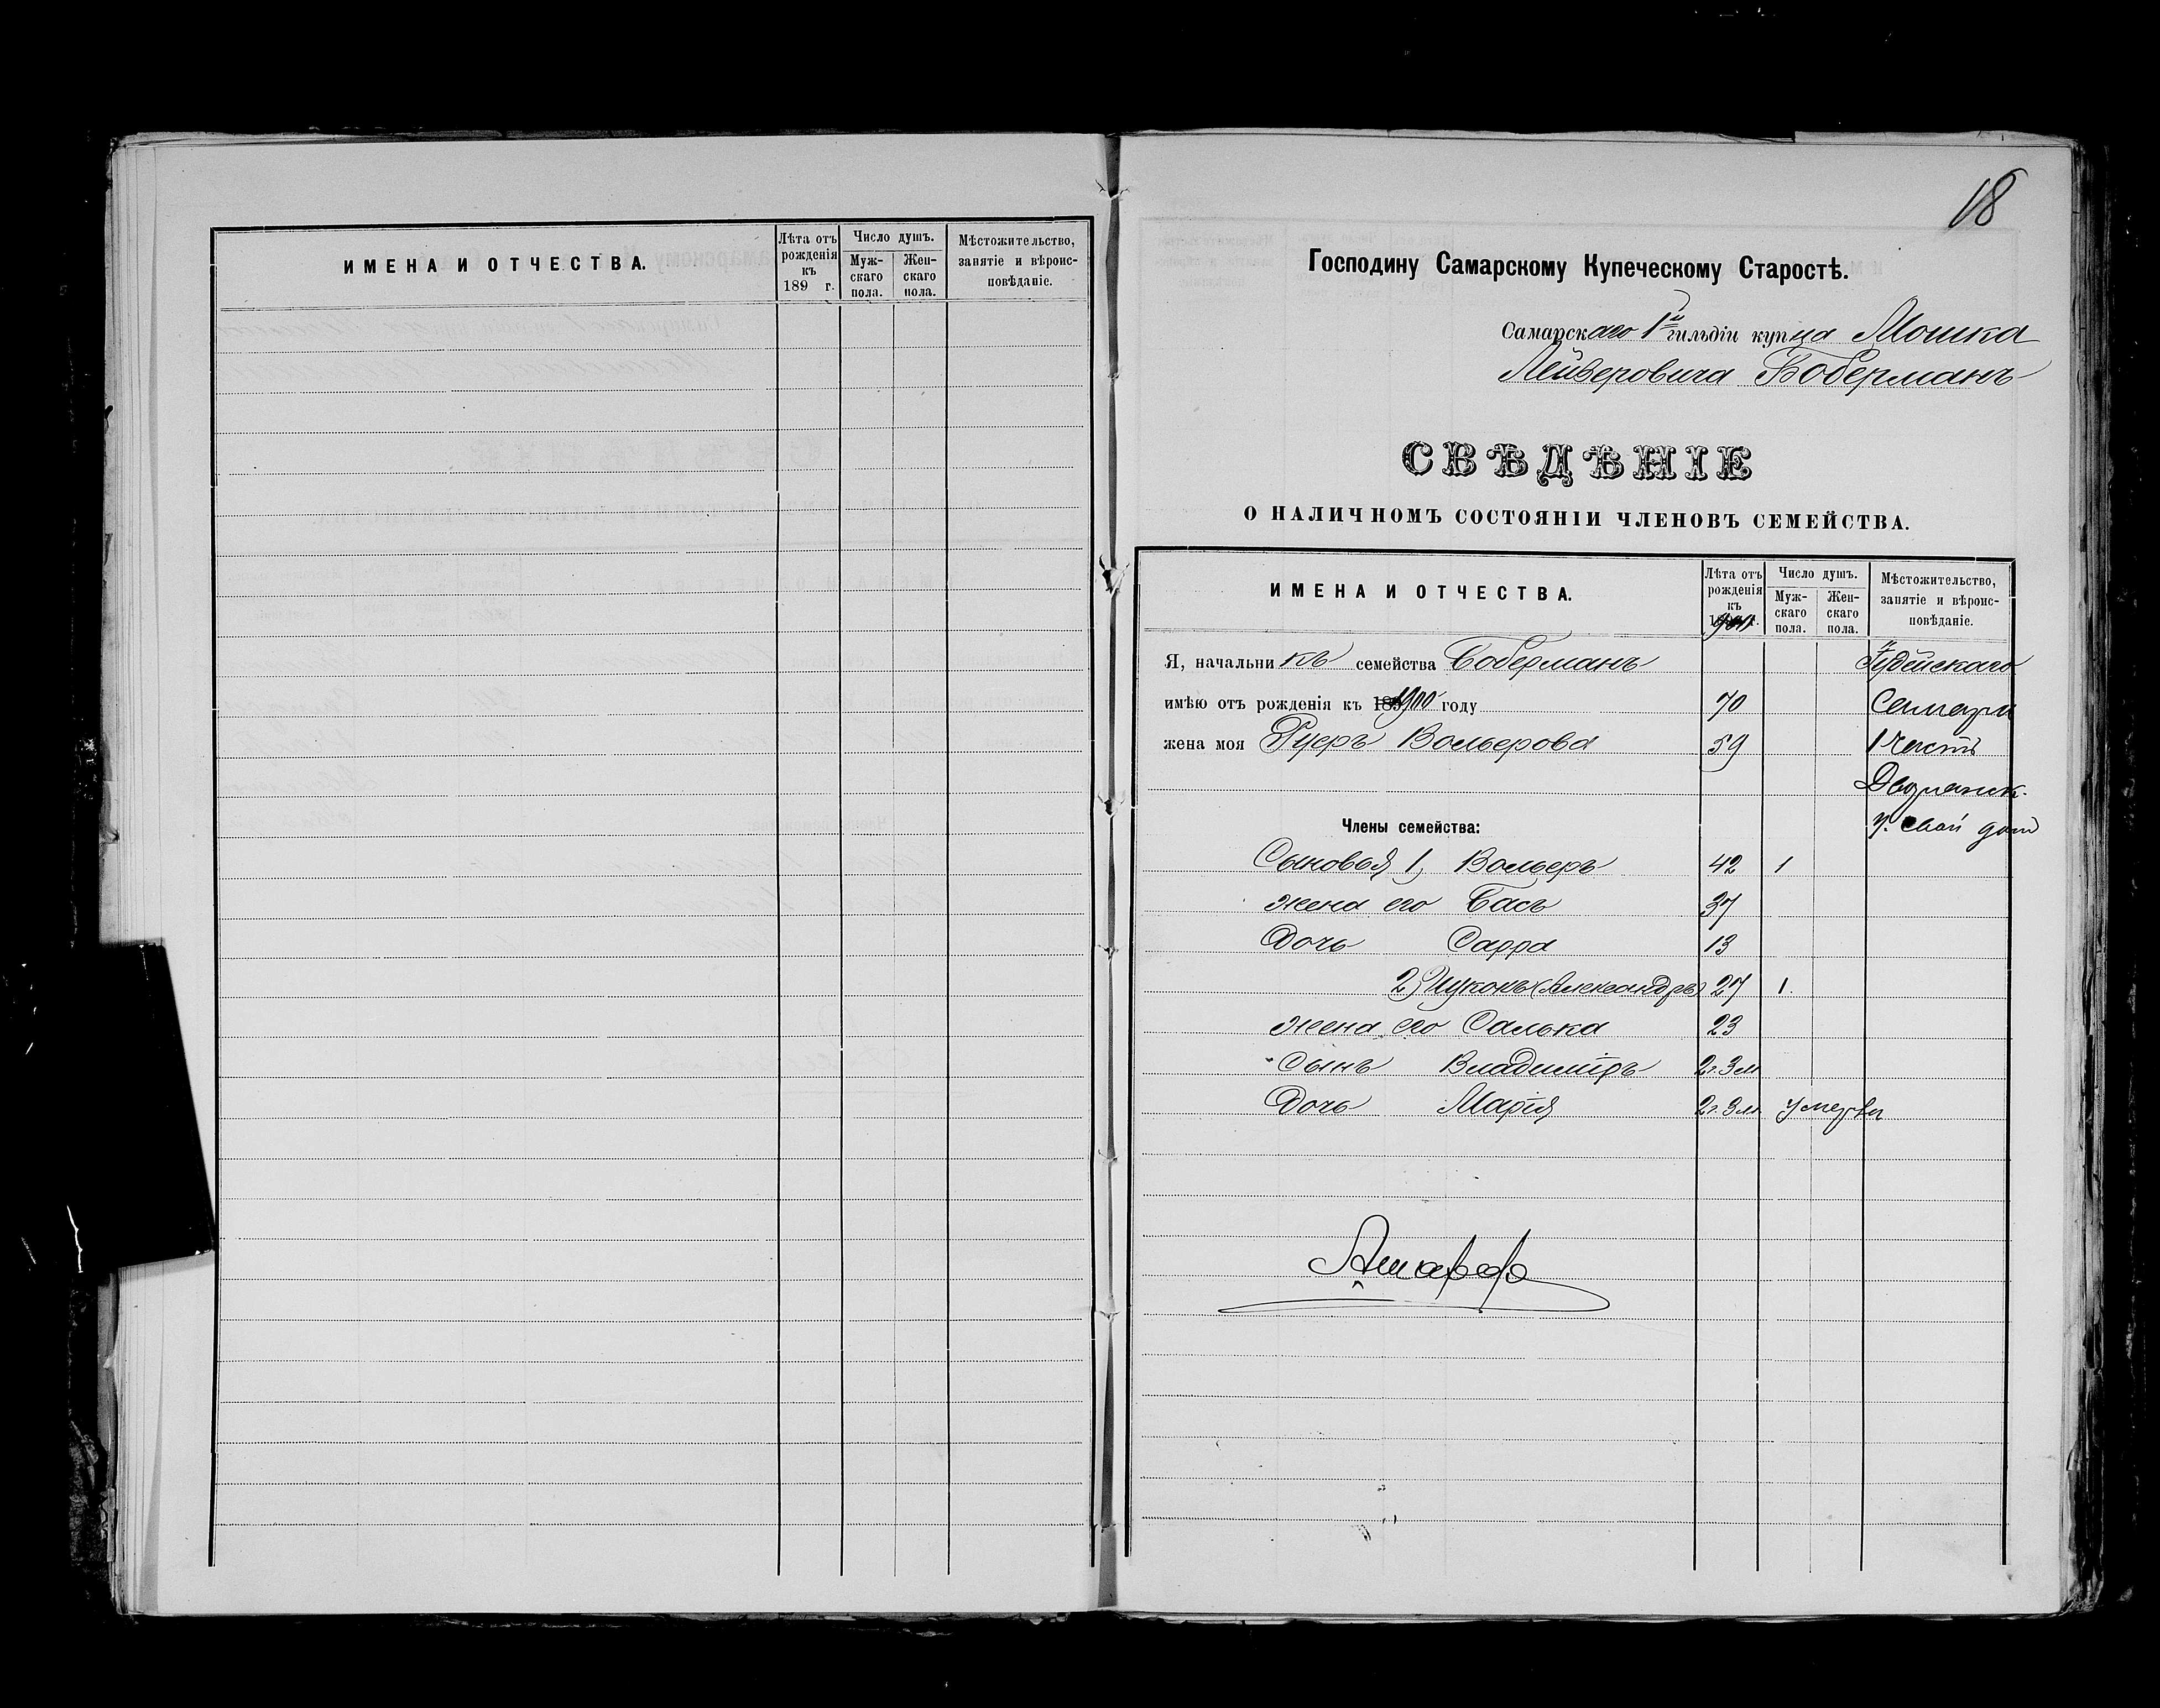 ИМЕНА И ОТЧЕСТВА.
Лѣта отъ рожденія къ 189 г.
Число душъ.
Муж-скаго пола.
Жен-скаго пола.
Мѣстожительство, занятіе и вѣроис-повѣданіе.
18
Господину Самарскому Купеческому Старостѣ.
Самарскаго 1й гильдіи купца Мошка
Лейзеровича Боберманъ
СВѢДѢНІЕ
О НАЛИЧНОМЪ СОСТОЯНІИ ЧЛЕНОВЪ СЕМЕЙСТВА.
ИМЕНА И ОТЧЕСТВА.
Лѣта отъ рожденія къ
Число душъ.
Муж-скаго пола.
Жен-скаго пола.
Мѣстожительство, занятіе и вѣроис-повѣданіе.
Я, начальникъ семейства Боберманъ Іудейскаго
имѣю отъ рожденія къ 1900 году 70 Самара
жена моя Вольерова 59 1 часть
Дворянск.
у. свой домъ
Члены семейства:
Сыновья 1, Вольеръ 42 1
жена его Бася 37
Дочь Сарра 13
2) (Александръ) 27 1.
жена его Салька 23
Сынъ Владиміръ 2г. 3м
Дочь Марія 2г. 3м. умерли